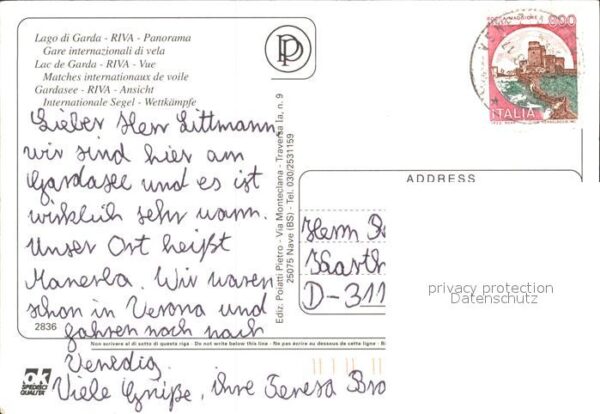 Lago di Garda - RIVA - Panorama
Gare internazionali di vela
Lac de Garda - RIVA - Vue
Matches internationaux de voile
Gardasee - RIVA - Ansicht
Internationale Segel - Wettkämpfe
Lieber Herr Littmann,
wir sind hier am
Gardasee und es ist
wirklich sehr warm.
Unser Ort heißt
Manerba. Wir waren
schon in Verona und
fahren noch nach
Venedig.
Viele Grüße, ihre Teresa Bro
2836
Non scrivere al di sotto di questa riga - Do not write below this line - Ne pas écrire au dessous de cette ligne - B
Ediz. Poiatti Pietro - Via Monteclana - Traversa Ia, n. 9
25075 Nave (BS) - Tel. 030/2531159
PD
ROCCA MAGGIORE
800
ITALIA
ADDRESS
Herrn
D-311
privacy protection
Datenschutz